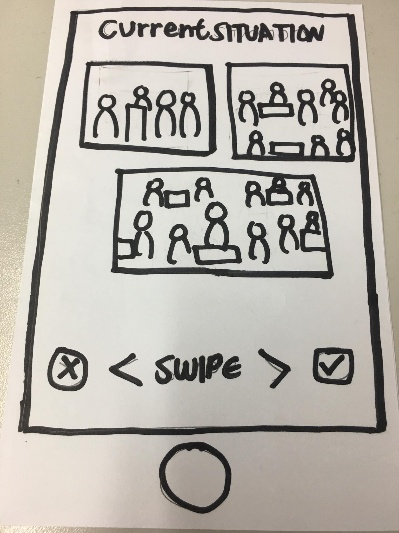 Current SITUATION
< SWIPE >